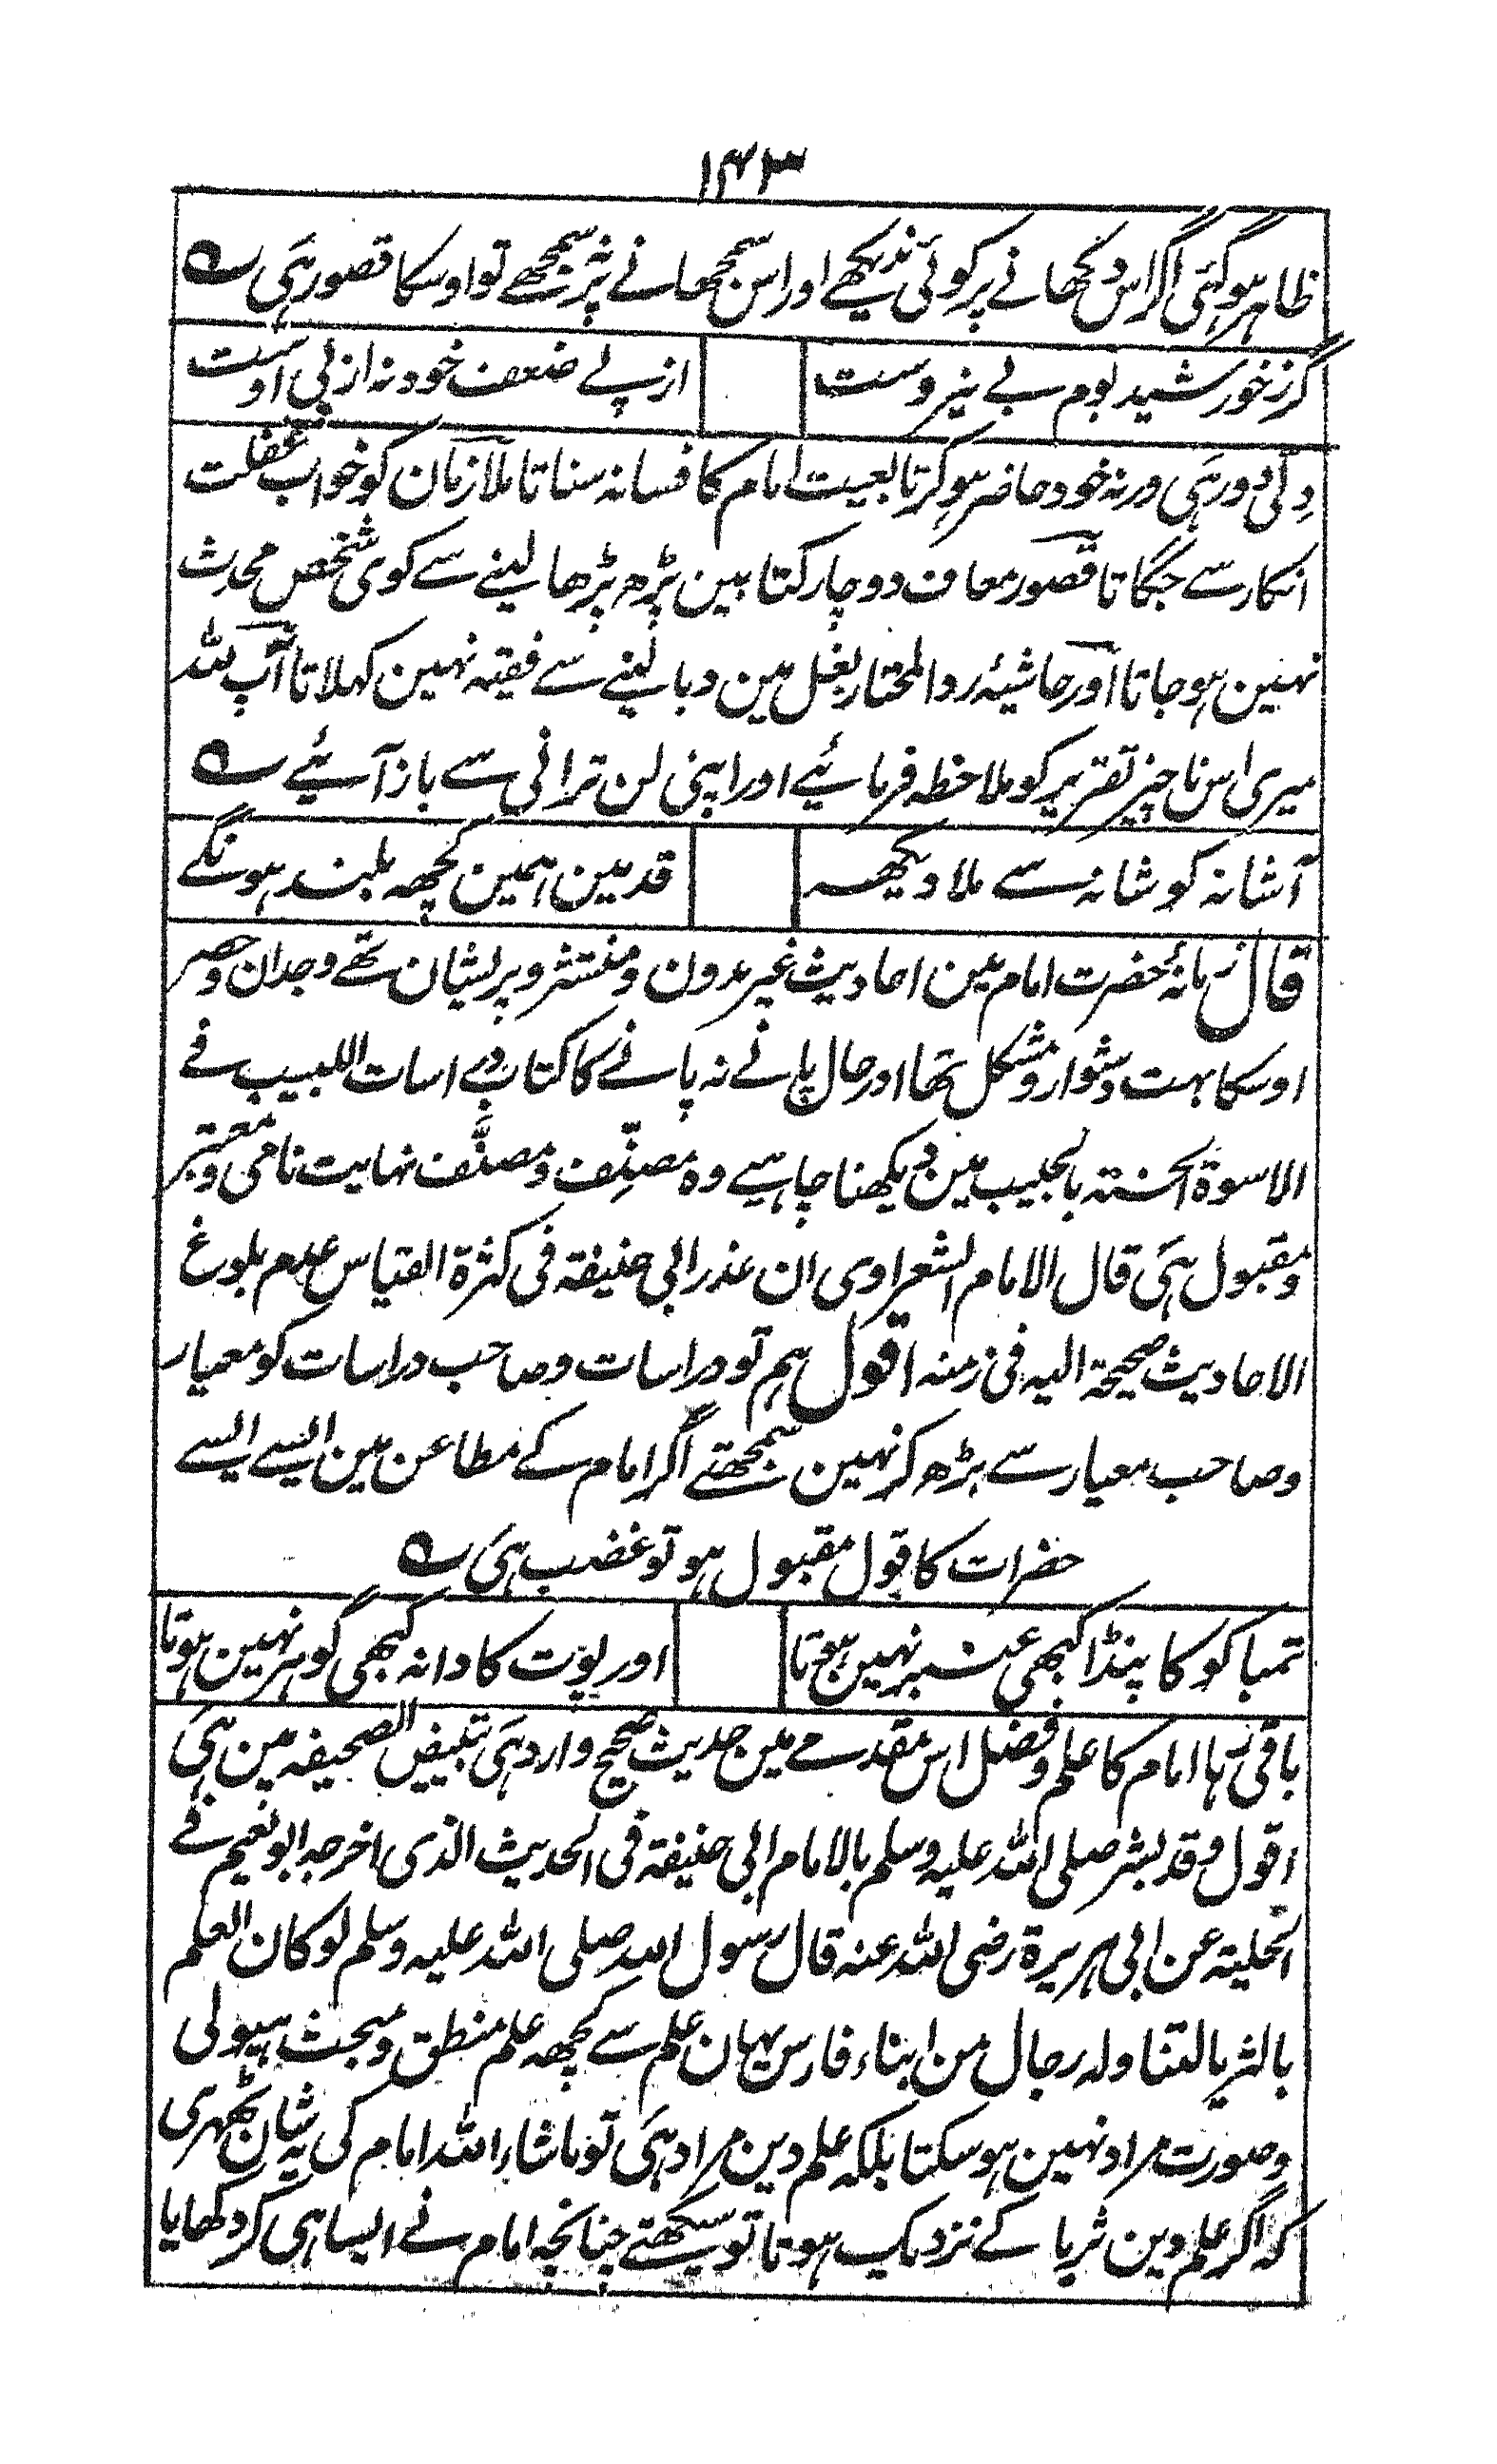 ۱۴۳
ظاہر ہوگئی اگر اس دکھانے پر کوئی ندیکھے اور اس سمجھانے پر نہ سمجھے تو اوسکا قصور ہَی ؎
گرز خورشید بوم بے نیروست از پے ضعف خود نہ از پی اوست
دِلّی دور ہَی ورنہ خود حاضر ہوکر تابعیت امام کا فسانہ سناتا ملازمان کو خواب غفلت
انکار سے جگاتا قصور معاف دو چار کتابین پڑھ پڑھا لینے سے کوی شخص محدث
نہین ہو جاتا اور حاشیۂ رد المختار بغل مین دبا لینے سے فقیہ نہین کہلاتا آپ للہ
میری اس ناچیز تقریر کو ملاحظہ فرمائیے اور اپنی لن ترانی سے باز آئیے ؎
آ شانہ کو شانہ سے ملا دیکھہ قد مین ہمین کچھہ بلند ہونگے
قال زمانۂ حضرت امام مین احادیث غیر مدون و منتشر و پریشان تھے وجدان و حصر
اوسکا بہت دشوار و مشکل تھا اور حال پانے نہ پانے کا کتاب دراسات اللبیب فے
الاسوۃ الحسنتہ بالحبیب مین دیکھنا چاہیے وہ مصنِّف و مصنَّف نہایت نامی و معتبر
و مقبول ہَی قال الامام الشعراوی ان عذر ابی حنیفۃ فی کثرۃ القیاس عدم بلوغ
الاحادیث صحیحۃ الیہ فی زمنہ اقول ہم تو دراسات و صاحب دراسات کو معیار
و صاحب معیار سے بڑھ کر نہین سمجھتے اگر امام کے مطاعن مین ایسے ایسے
حضرات کا قول مقبول ہو تو غضب ہَی ؎
تمباکو کا پنڈا کبھی عنبر نہین ہوتا اور پوت کا دانہ کبھی گوہر نہین ہوتا
باقی رہا امام کا علم و فضل اس مقدمے مین حدیث صحیح وارد ہَی تبییض الصحیفہ مین ہَی
اقول وقد بشر صلی اللہ علیہ وسلم بالامام ابی حنیفۃ فی الحدیث الذی اخرجہ ابو نعیم فے
الحلیتہ عن ابی ہریرۃ رضی اللہ عنہ قال رسول اللہ صلی اللہ علیہ وسلم لو کان العلم
بالثریا لتناولہ رجال من ابناء فارس یہان علم سے کچھہ علم منطق و مبحث ہیولی
و صورت مراد نہین ہو سکتا بلکہ علم دین مراد ہَی تو ماشاء اللہ امام کی یہ شان ٹھہری
کہ اگر علم دین ثریا کے نزدیک ہوتا تو سیکھتے چنانچہ امام نے ایسا ہی کر دکھایا